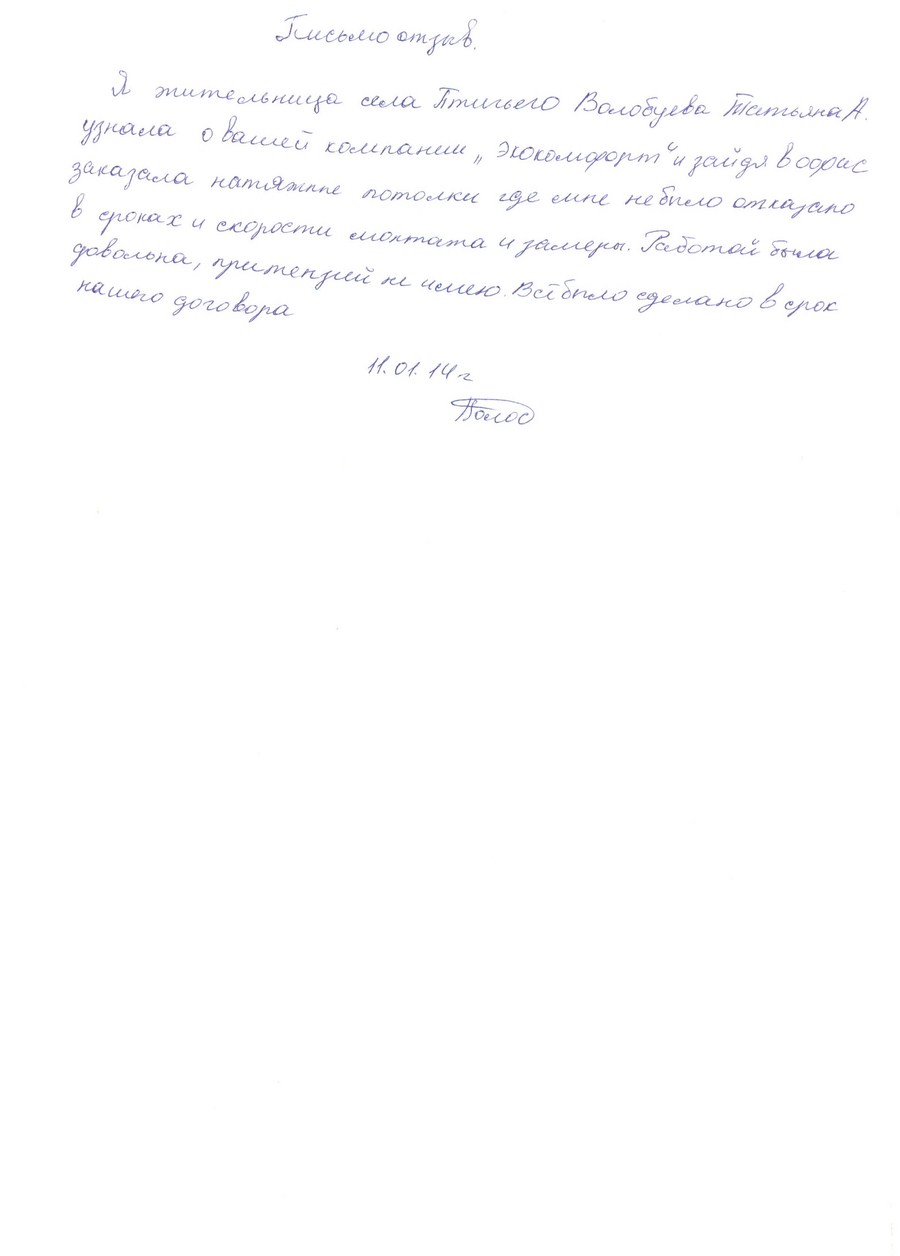 Письмо отзыв.
Я жительница села Птичьего Волобуева Татьяна А.
узнала о вашей компании „Экокомфорт“ и зайдя в офис
заказала натяжные потолки где мне небыло отказано
в сроках и скорости монтажа и замеры. Работой была
довольна, притензий не имею. Всё было сделано в срок
нашего договора
11.01.14г